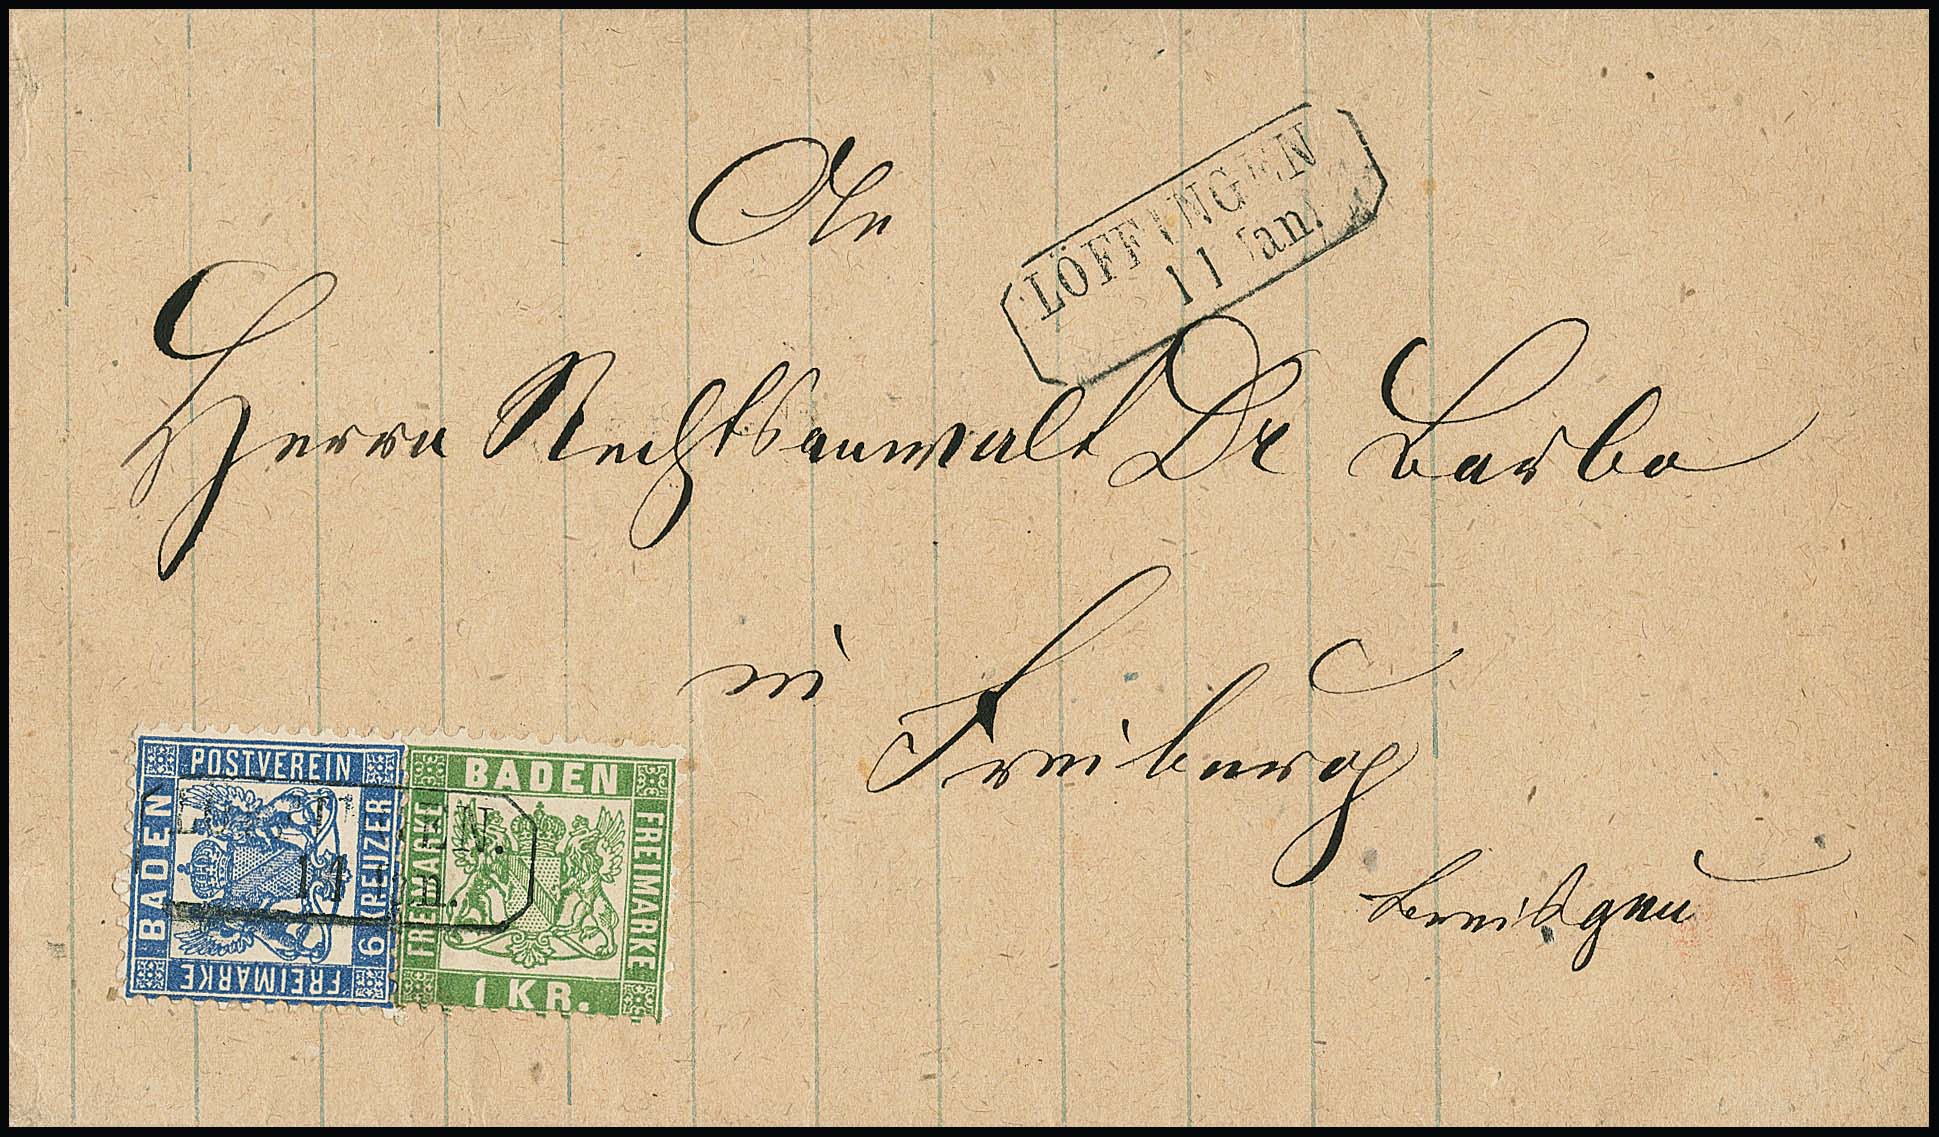 An
LÖFFINGEN
11 Jan.
Herrn Rechtsanwalt Dr Barbo
in Freiburg
Breisgau
POSTVEREIN
BADEN
6 KREUZER
FREIMARKE
BADEN
FREIMARKE
FREIMARKE
1 KR.